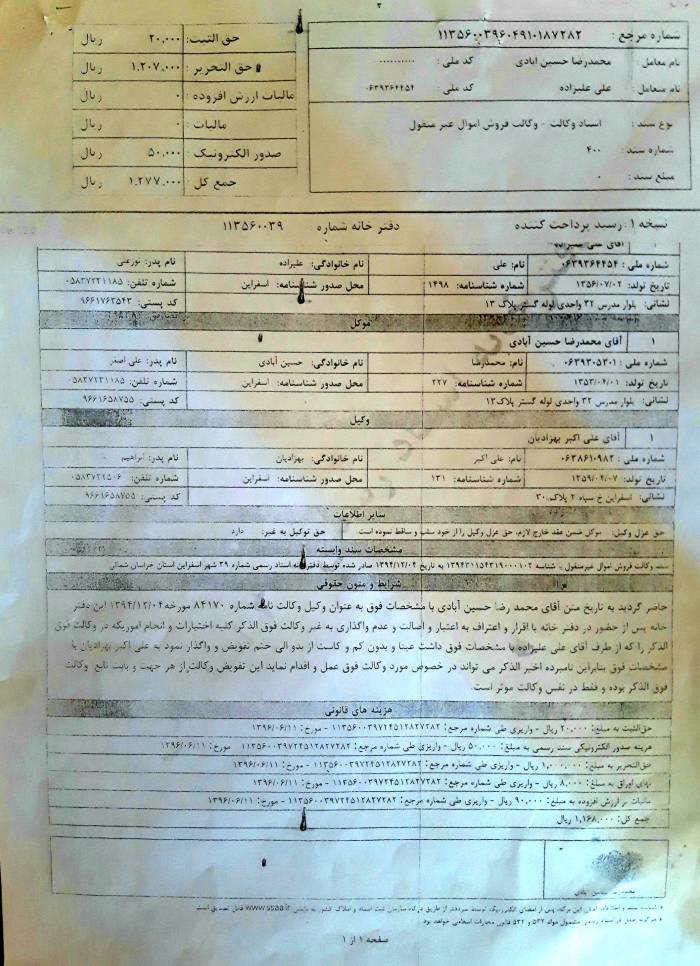 شماره مرجع : ۱۱۳۵۶۰۰۳۹۶۰۴۹۱۰۱۸۷۲۸۲
نام معامل : محمدرضا حسین ابادی کد ملی : ..........
نام متعامل : علی علیزاده کد ملی : ۰۶۳۹۳۶۴۴۵۴
نوع سند : اسناد وکالت - وکالت فروش اموال غیر منقول
شماره سند : ۴۰۰
مبلغ سند : ۰
حق الثبت: ۲۰,۰۰۰ ریال
حق التحریر : ۱,۲۰۷,۰۰۰ ریال
مالیات ارزش افزوده : ۰ ریال
مالیات : ۰ ریال
صدور الکترونیک : ۵۰,۰۰۰ ریال
جمع کل : ۱,۲۷۷,۰۰۰ ریال
نسخه ۱: رسید پرداخت کننده دفتر خانه شماره ۱۱۳۵۶۰۰۳۹
۱ آقای علی علیزاده
شماره ملی : ۰۶۳۹۳۶۴۴۵۴ نام: علی نام خانوادگی: علیزاده نام پدر: نورعلی
تاریخ تولد: ۱۳۵۶/۰۷/۰۲ شماره شناسنامه: ۱۴۹۸ محل صدور شناسنامه: اسفراین شماره تلفن: ۰۵۸۳۷۲۳۱۱۸۵
نشانی: بلوار مدرس ۳۲ واحدی لوله گستر پلاک ۱۳ کد پستی: ۹۶۶۱۷۶۳۵۴۳
موکل
۱ آقای محمدرضا حسین آبادی
شماره ملی : ۰۶۳۹۳۰۵۳۰۱ نام: محمدرضا نام خانوادگی: حسین آبادی نام پدر: علی اصغر
تاریخ تولد: ۱۳۵۳/۰۴/۰۱ شماره شناسنامه: ۲۲۷ محل صدور شناسنامه: اسفراین شماره تلفن: ۰۵۸۳۷۲۳۱۱۸۵
نشانی: بلوار مدرس ۳۲ واحدی لوله گستر پلاک۱۳ کد پستی: ۹۶۶۱۶۵۸۷۵۵
وکیل
۱ آقای علی اکبر بهزادیان
شماره ملی : ۰۶۳۸۶۱۰۹۸۲ نام: علی اکبر نام خانوادگی: بهزادیان نام پدر: ابراهیم
تاریخ تولد: ۱۳۵۹/۰۴/۰۷ شماره شناسنامه: ۱۳۱ محل صدور شناسنامه: اسفراین شماره تلفن: ۰۵۸۳۷۲۲۵۰۶
نشانی: اسفراین خ سپاه ۲ پلاک۳۰ کد پستی: ۹۶۶۱۶۵۸۷۵۵
سایر اطلاعات
حق عزل وکیل: موکل ضمن عقد خارج لازم، حق عزل وکیل را از خود سلب و ساقط نموده است حق توکیل به غیر: دارد
مشخصات سند وابسته
سند وکالت فروش اموال غیرمنقول با شناسه ۱۳۹۴۳۱۱۵۴۳۱۹۰۰۰۱۰۲ به تاریخ ۱۳۹۴/۱۲/۰۴ صادر شده توسط دفترخانه اسناد رسمی شماره ۳۹ شهر اسفراین استان خراسان شمالی
شرایط و متون حقوقی
حاضر گردید به تاریخ متن آقای محمد رضا حسین آبادی با مشخصات فوق به عنوان وکیل وکالت نامه شماره ۸۴۱۷۰ مورخه۱۳۹۴/۱۲/۰۴ این دفتر
خانه پس از حضور در دفتر خانه با اقرار و اعتراف به اعتبار و اصالت و عدم واگذاری به غیر وکالت فوق الذکر کلیه اختیارات و انجام اموریکه در وکالت فوق
الذکر را که از طرف آقای علی علیزاده با مشخصات فوق داشت عینا و بدون کم و کاست از بدو الی ختم تفویض و واگذار نمود به علی اکبر بهزادیان با
مشخصات فوق بنابراین نامبرده اخیر الذکر می تواند در خصوص مورد وکالت فوق عمل و اقدام نماید این تفویض وکالت از هر جهت و بابت تابع وکالت
فوق الذکر بوده و فقط در نفس وکالت موثر است.
هزینه های قانونی
حق‌الثبت به مبلغ: ۲۰,۰۰۰ ریال - واریزی طی شماره مرجع: ۱۱۳۵۶۰۰۳۹۷۲۴۵۱۲۸۲۷۲۸۲ - مورخ: ۱۳۹۶/۰۶/۱۱
هزینه صدور الکترونیکی سند رسمی به مبلغ: ۵۰,۰۰۰ ریال - واریزی طی شماره مرجع: ۱۱۳۵۶۰۰۳۹۷۲۴۵۱۲۸۲۷۲۸۲ مورخ: ۱۳۹۶/۰۶/۱۱
حق‌التحریر به مبلغ: ۱,۰۰۰,۰۰۰ ریال - واریزی طی شماره مرجع: ۱۱۳۵۶۰۰۳۹۷۲۴۵۱۲۸۲۷۲۸۲ - مورخ: ۱۳۹۶/۰۶/۱۱
بهای اوراق به مبلغ: ۸,۰۰۰ ریال - واریزی طی شماره مرجع: ۱۱۳۵۶۰۰۳۹۷۲۴۵۱۲۸۲۷۲۸۲ - مورخ: ۱۳۹۶/۰۶/۱۱
مالیات بر ارزش افزوده به مبلغ: ۹۰,۰۰۰ ریال - واریزی طی شماره مرجع: ۱۱۳۵۶۰۰۳۹۷۲۴۵۱۲۸۲۷۲۸۲ - مورخ: ۱۳۹۶/۰۶/۱۱
جمع کل: ۱,۱۶۸,۰۰۰ ریال
محمدرضا حسین آبادی
شناسه سند و اطلاعات این برگه، پس از امضای الکترونیک توسط سردفتر از طریق درگاه سازمان ثبت اسناد و املاک کشور به نشانی www.ssaa.ir قابل تصدیق است
هرگونه جعل در اسناد رسمی مشمول مواد ۵۳۲ و ۵۳۳ قانون مجازات اسلامی خواهد بود
صفحه ۱ از ۱